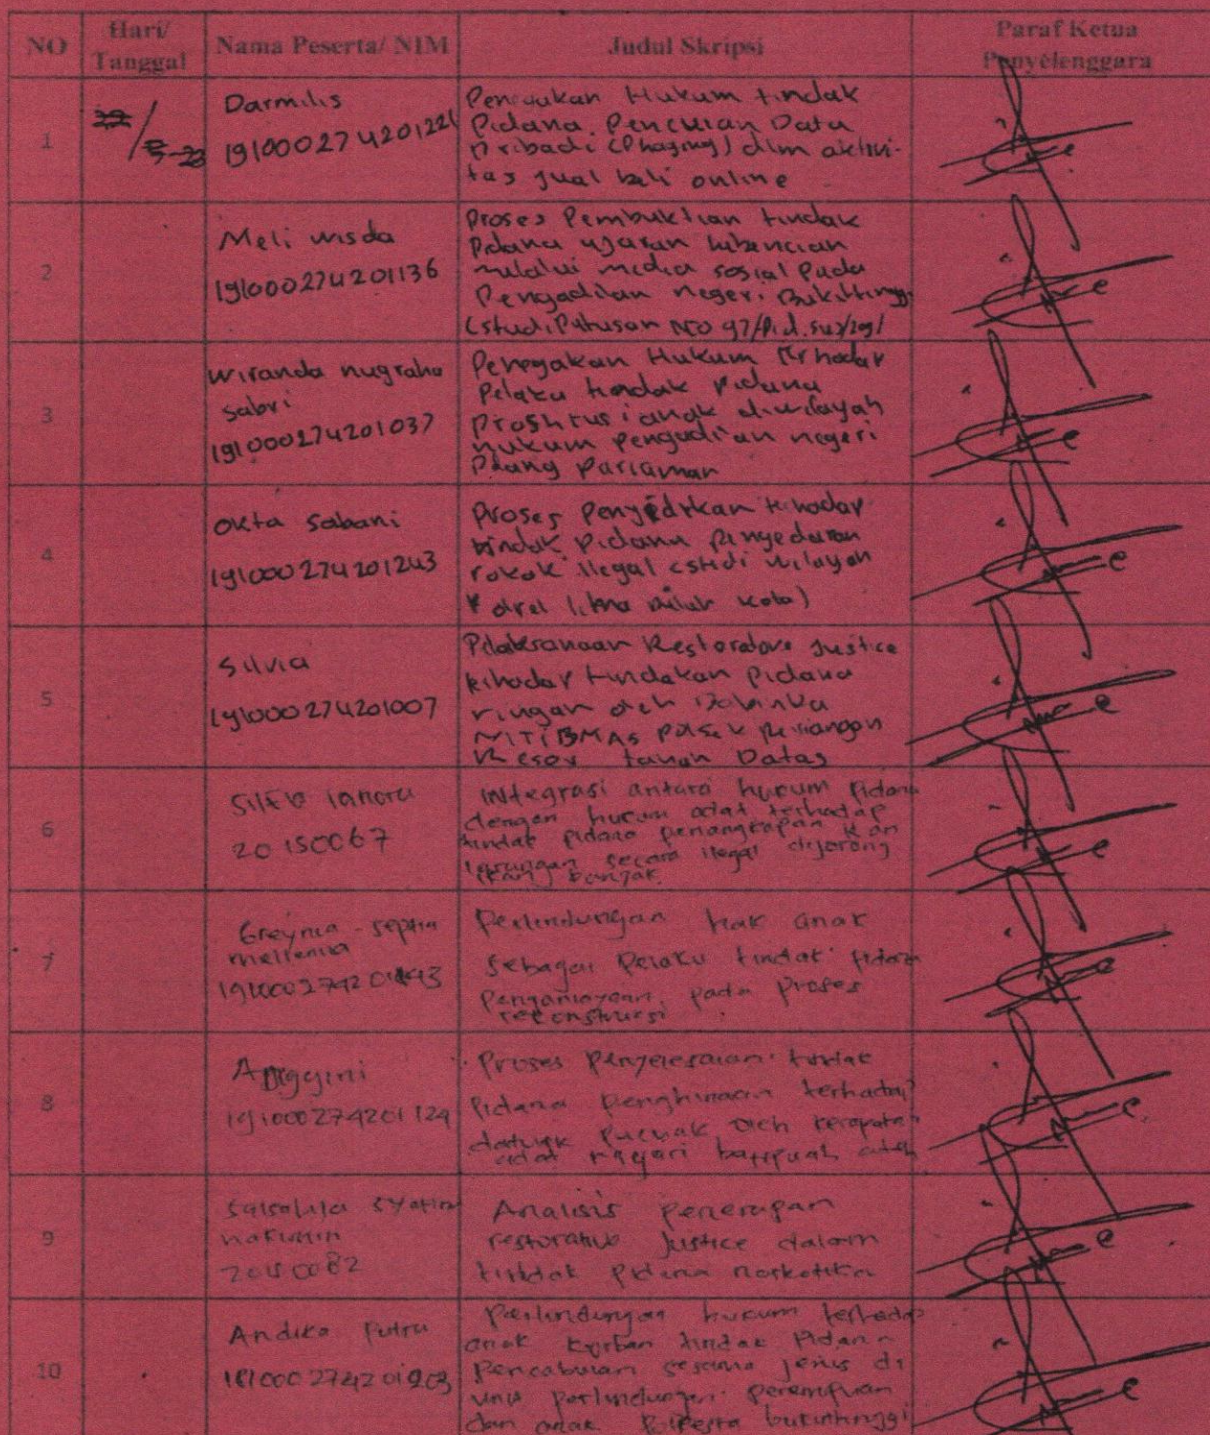 NO
Hari/
Tanggal
Nama Peserta/ NIM
Judul Skripsi
Paraf Ketua
Penyelenggara
1
22/
5-23
Darmilis
191000274201221
Penegakan Hukum tindak
Pidana Pencurian Data
Pribadi (Phaging) dlm aktivi-
tas jual beli online
2
Meli wisda
191000274201136
Proses Pembuktian tindak
Pidana ujaran kebencian
melalui media sosial Pada
Pengadilan negeri Bukittinggi
(studi Putusan NO 97/Pid.sus/
3
Wiranda nugraha
sabri
191000274201037
Penegakan Hukum terhadap
Pelaku tindak Pidana
Prostitusi anak diwilayah
hukum pengadilan negeri
Pariaman
4
Okta Sabani
191000274201243
Proses Penyidikan terhadap
tindak Pidana Pengedaran
rokok ilegal (studi wilayah
lima Puluh kota)
5
Silvia
191000274201007
Pelaksanaan Restorative Justice
terhadap tindakan Pidana
ringan oleh
Polsek Pariangan
Resor tanah Datar
6
20150067
integrasi antara hukum pidana
dengan hukum adat terhadap
tindak pidana penangkapan ikan
larangan secara ilegal dijorong
7
Greynia - septia
Perlindungan hak anak
sebagai Pelaku tindak pidana
Penganiayaan pada Proses
rekonstruksi
8
Anggyini
191000274201124
Proses Penyelesaian tindak
Pidana Penghinaan terhadap
datuak Pucuak oleh kerapatan
adat nagari
9
Analisis Penerapan
restorative Justice dalam
tindak Pidana narkotika
10
Andika Putra
Perlindungan hukum terhadap
anak korban tindak Pidana
Pencabulan sesama jenis di
unit perlindungan perempuan
dan anak Polresta bukittinggi